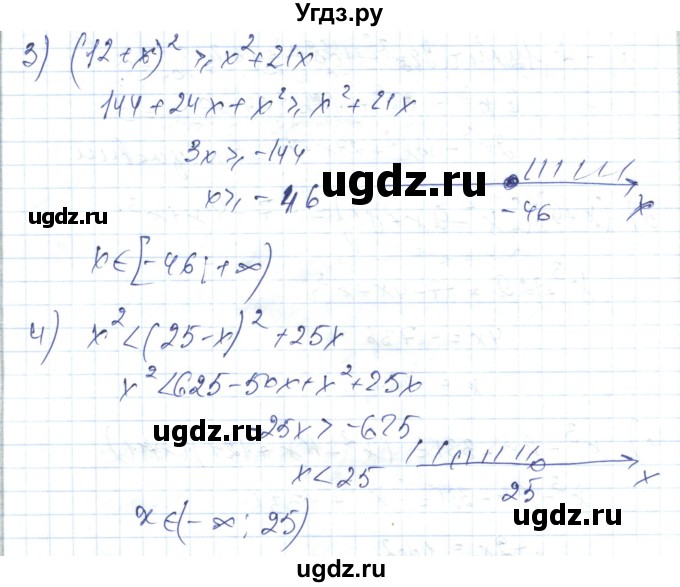 Угдз.ру
3) (12+x)² ≥ x²+21x
144+24x+x² ≥ x²+21x
3x ≥ -144
x ≥ -46
-46
x
ugdz.ru
ugdz.ru
ugdz.ru
x∈[-46;+∞)
4) x² < (25-x)²+25x
x² < 625-50x+x²+25x
ugdz.ru
25x > -625
x < 25
25
x
x∈(-∞; 25)
ugdz.ru
ugdz.ru